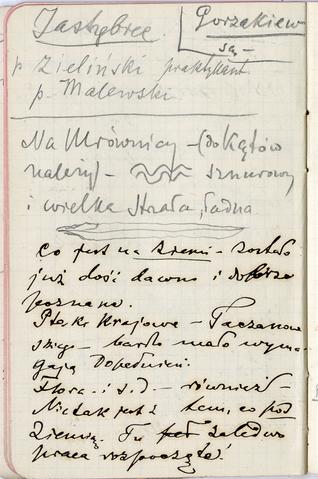 Jastrzębiec.
Gorzakiew
są –
p. Zieliński praktykant
p. Malewski
Na Mrównicy – (do Kątów
należy) – sznurowy
i wielka strzała, ładna
Co jest na ziemi – zostało
już dość dawno i dobrze
poznane.
Ptaki Krajowe – Taczanow
skiego – bardzo mało wyma
gają dopełnień.
Flora i t.d. – również –
Nie tak jest z tem, co pod
ziemią. Tu zaledwo
praca rozpoczęta!